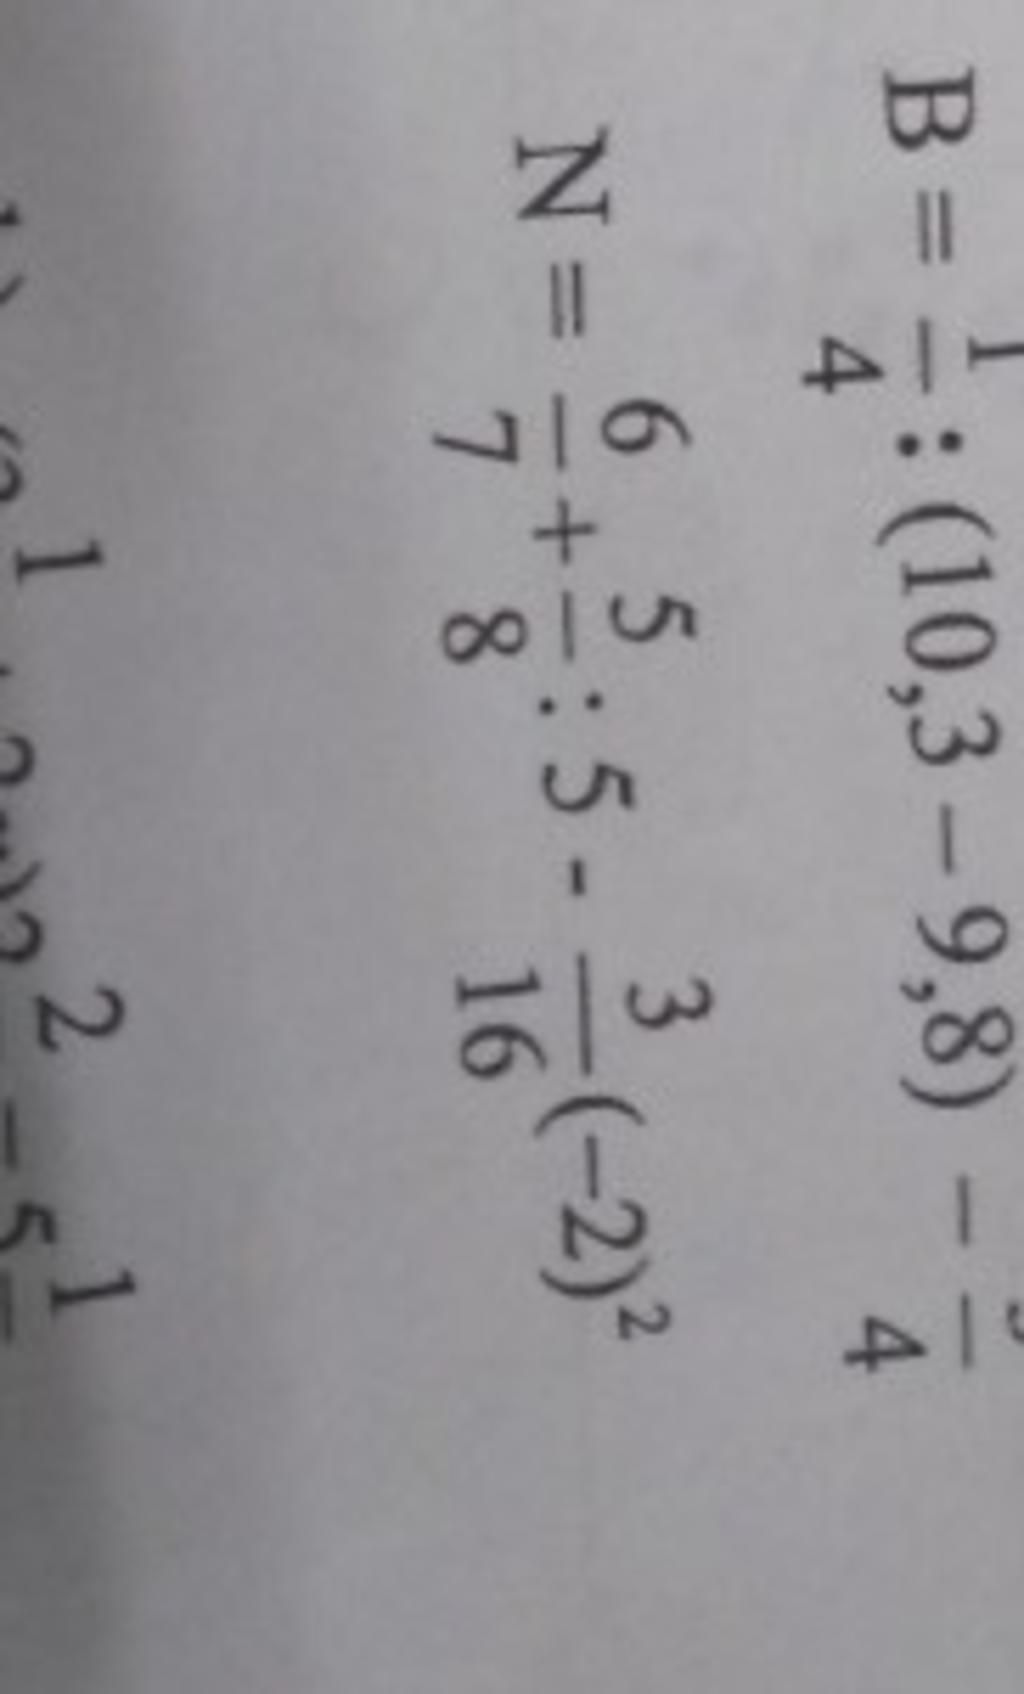 B = 1/4 : (10,3 – 9,8) – /4
N = 6/7 + 5/8 : 5 - 3/16 (–2)²
1 2 – 5 1